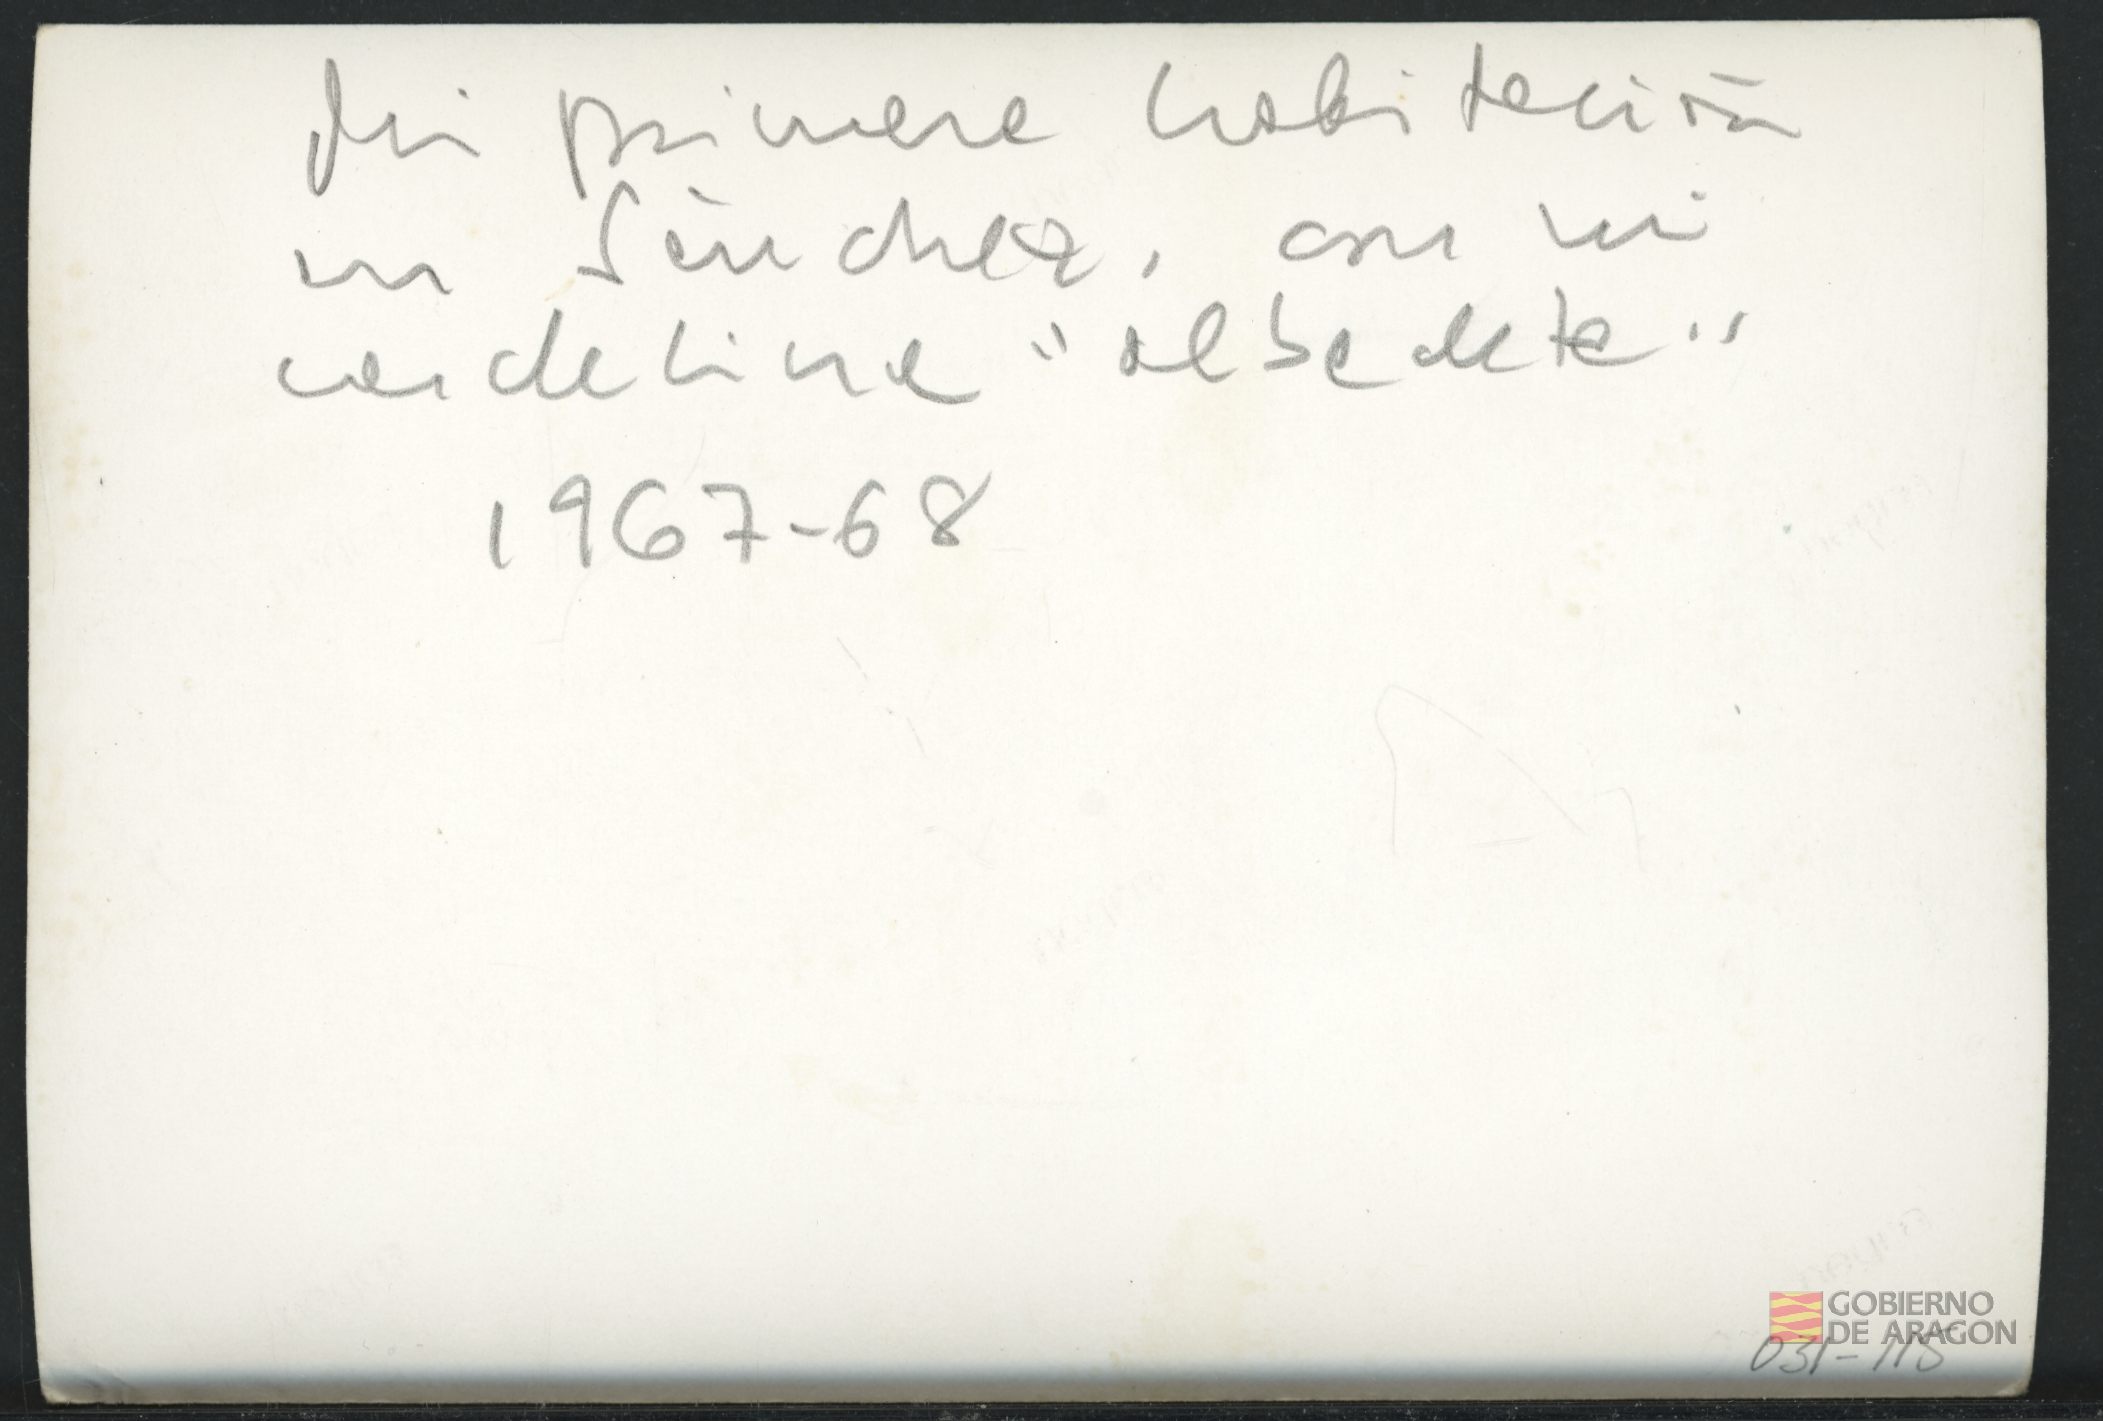 Mi primera habitación
en Sánchez, con mi
cardelina "albadeta"
1967-68
GOBIERNO
DE ARAGON
031-115